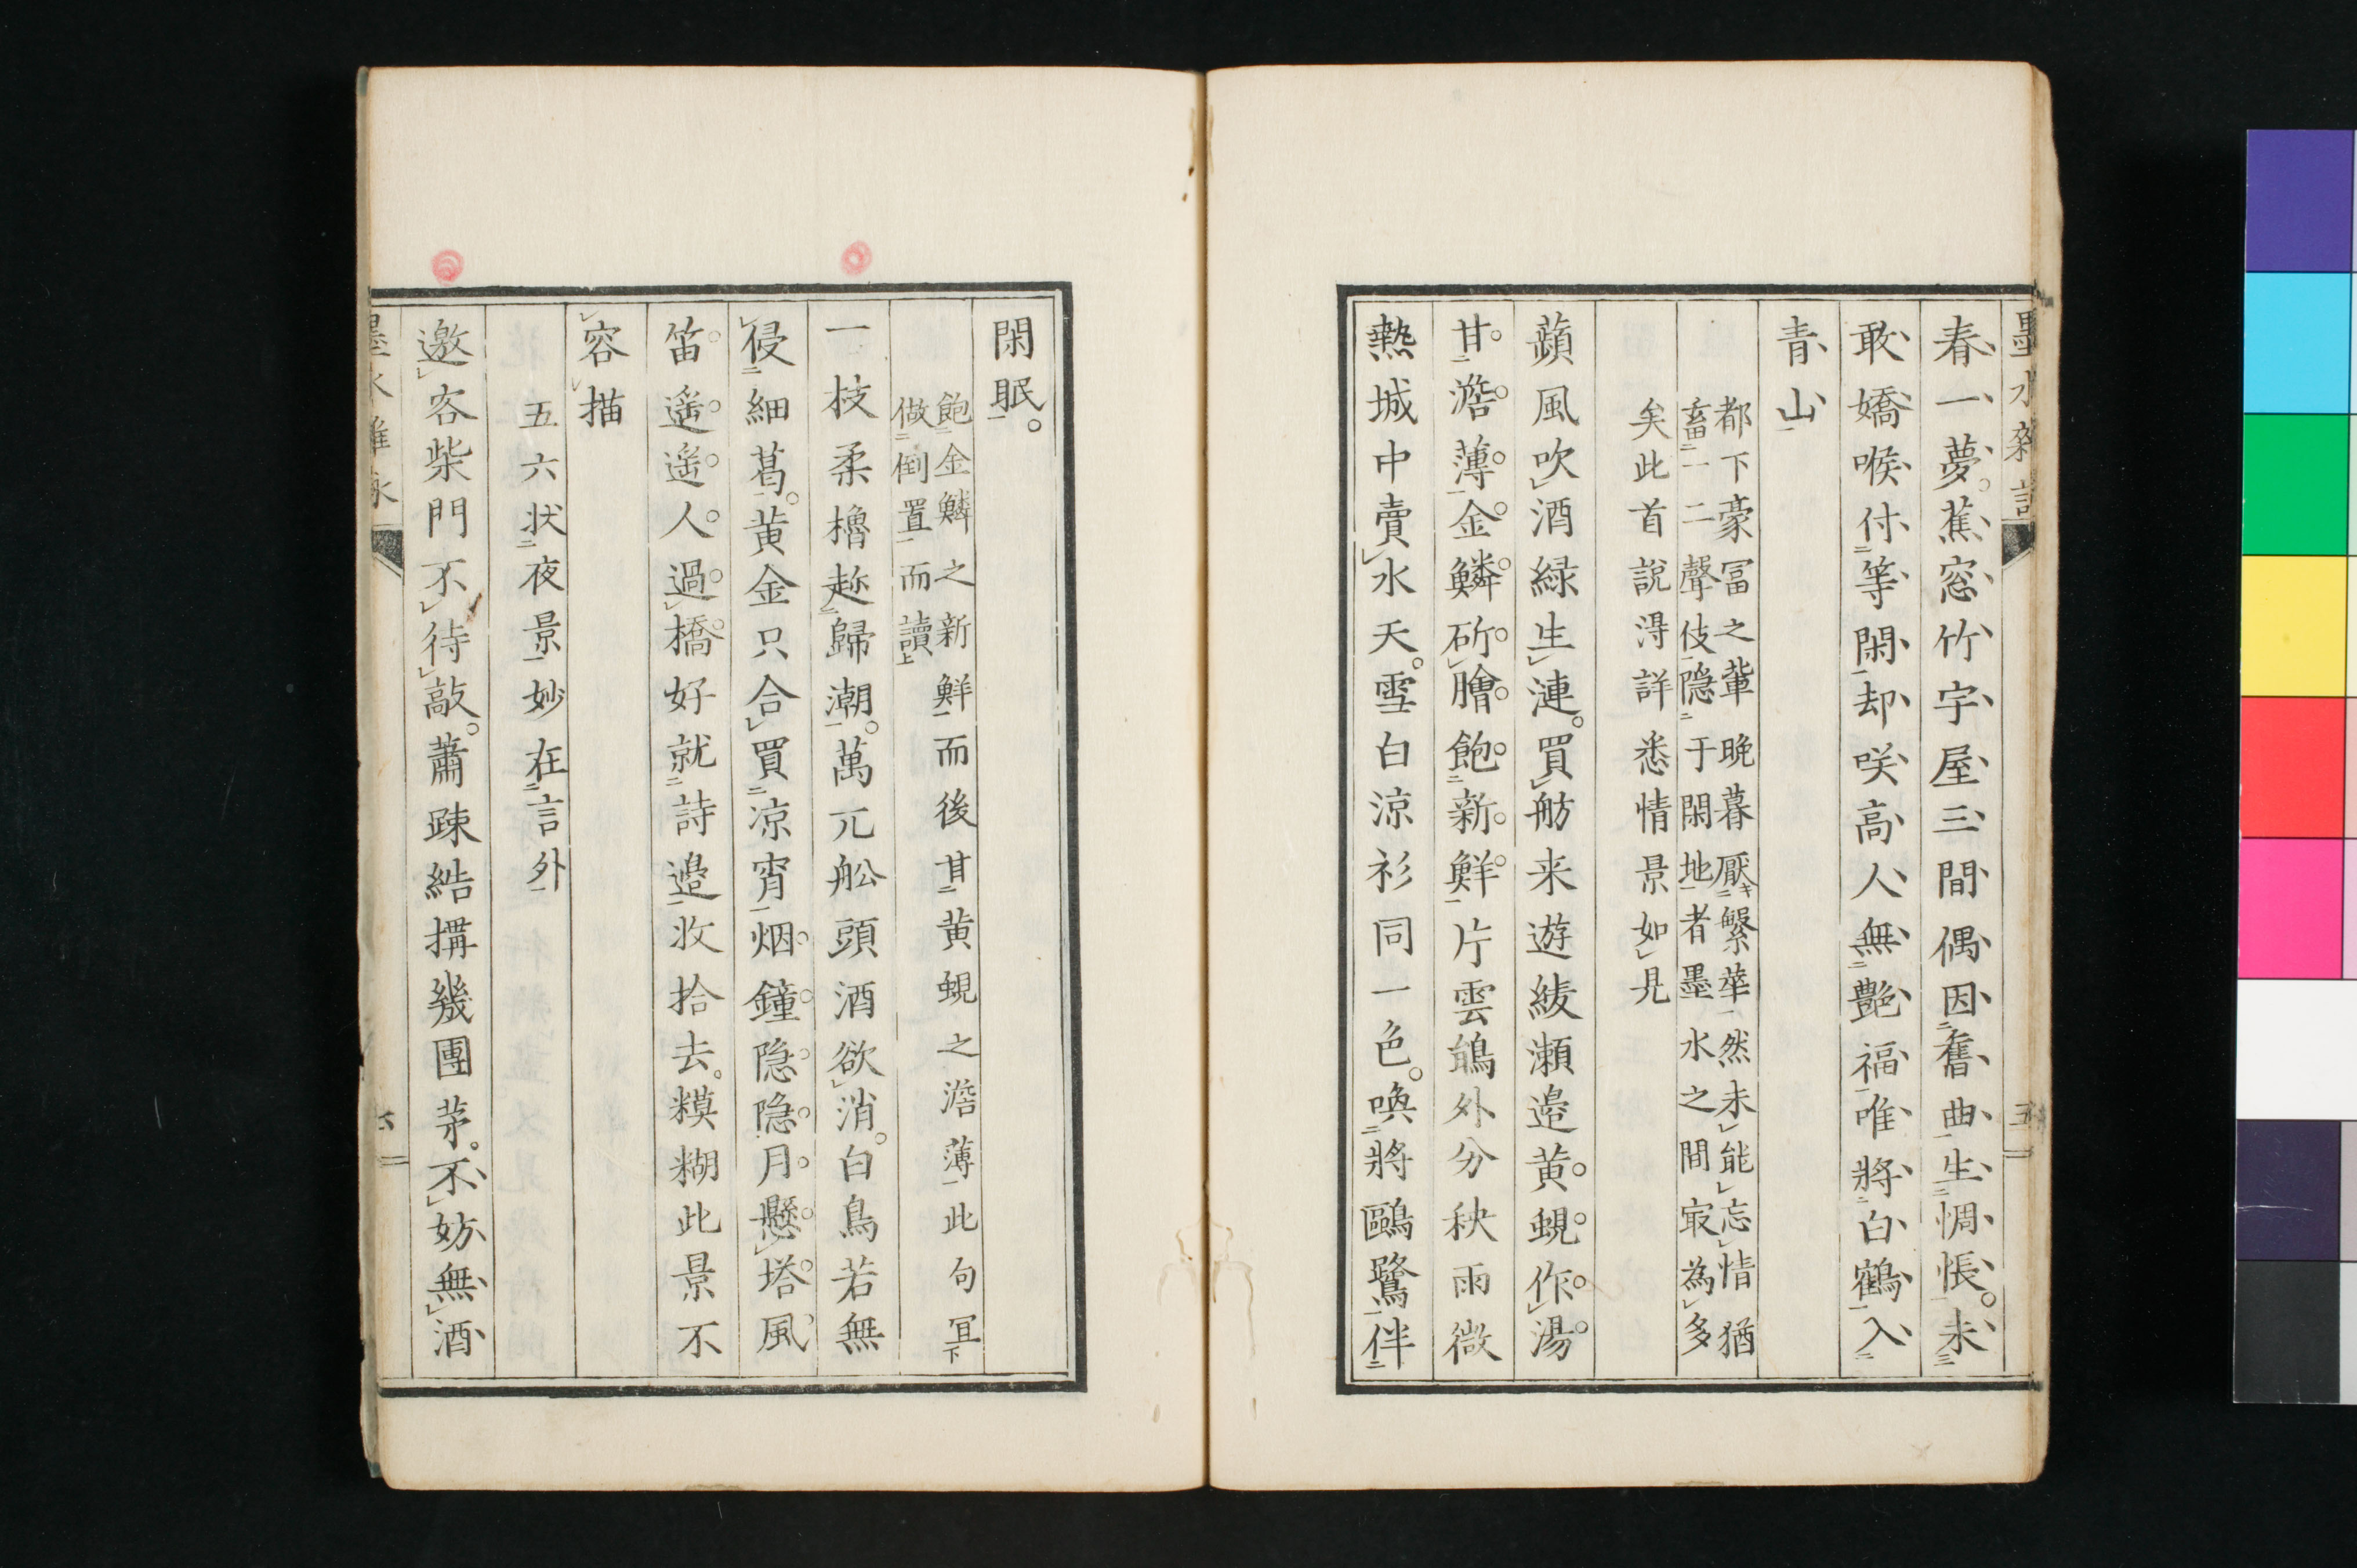 春一夢蕉窓竹宇屋三間偶因舊曲生惆悵未
敢嬌喉付等閑却咲高人無艶福唯將白鶴入
青山
都下豪冨之輩晩暮厭繁華然未能忘情猶
畜一二聲伎隐于閑地者墨水之間㝡為多
矣此首說淂詳悉情景如見
蘋風吹酒緑生漣買舫来遊綾瀬邉黄蜆作湯
甘澹薄金鱗斫膾飽新鮮片雲鴗外分秧雨微
熱城中賣水天雪白涼衫同一色喚將鷗鷺伴
閑眠
飽金鱗之新鮮而後甘黄蜆之澹薄此句冝
做倒置而讀
一枝柔櫓趂歸潮萬兀舩頭酒欲消白鳥若無
侵細葛黄金只合買凉宵烟鐘隐隐月懸塔風
笛遥遥人過橋好就詩邉收拾去糢糊此景不
容描
五六状夜景妙在言外
邀客柴門不待敲蕭踈結搆幾團茅不妨無酒